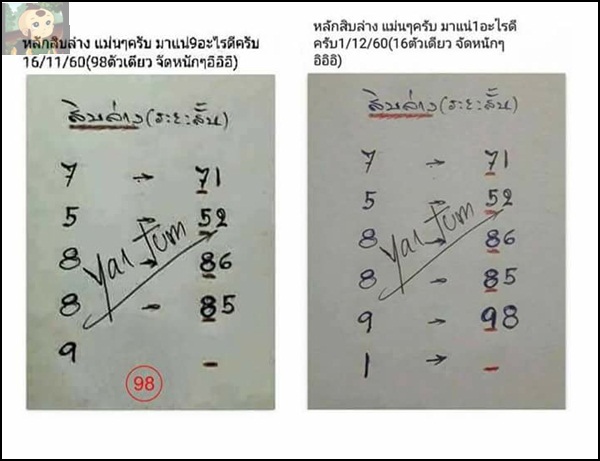 หลักสิบล่าง แม่นๆครับ มาแน่9อะไรดีครับ
16/11/60(98ตัวเดียว จัดหนักๆอิอิอิ)
สิบล่าง(ระยะสั้น)
7 → 71
5 → 52
8 → 86
8 - 85
9 -
Yai Tum
98
หลักสิบล่าง แม่นๆครับ มาแน่1อะไรดี
ครับ1/12/60(16ตัวเดียว จัดหนักๆ
อิอิอิ)
สิบล่าง(ระยะสั้น)
7 - 71
5 - 52
8 - 86
8 - 85
9 - 98
1 → -
Yai Tum